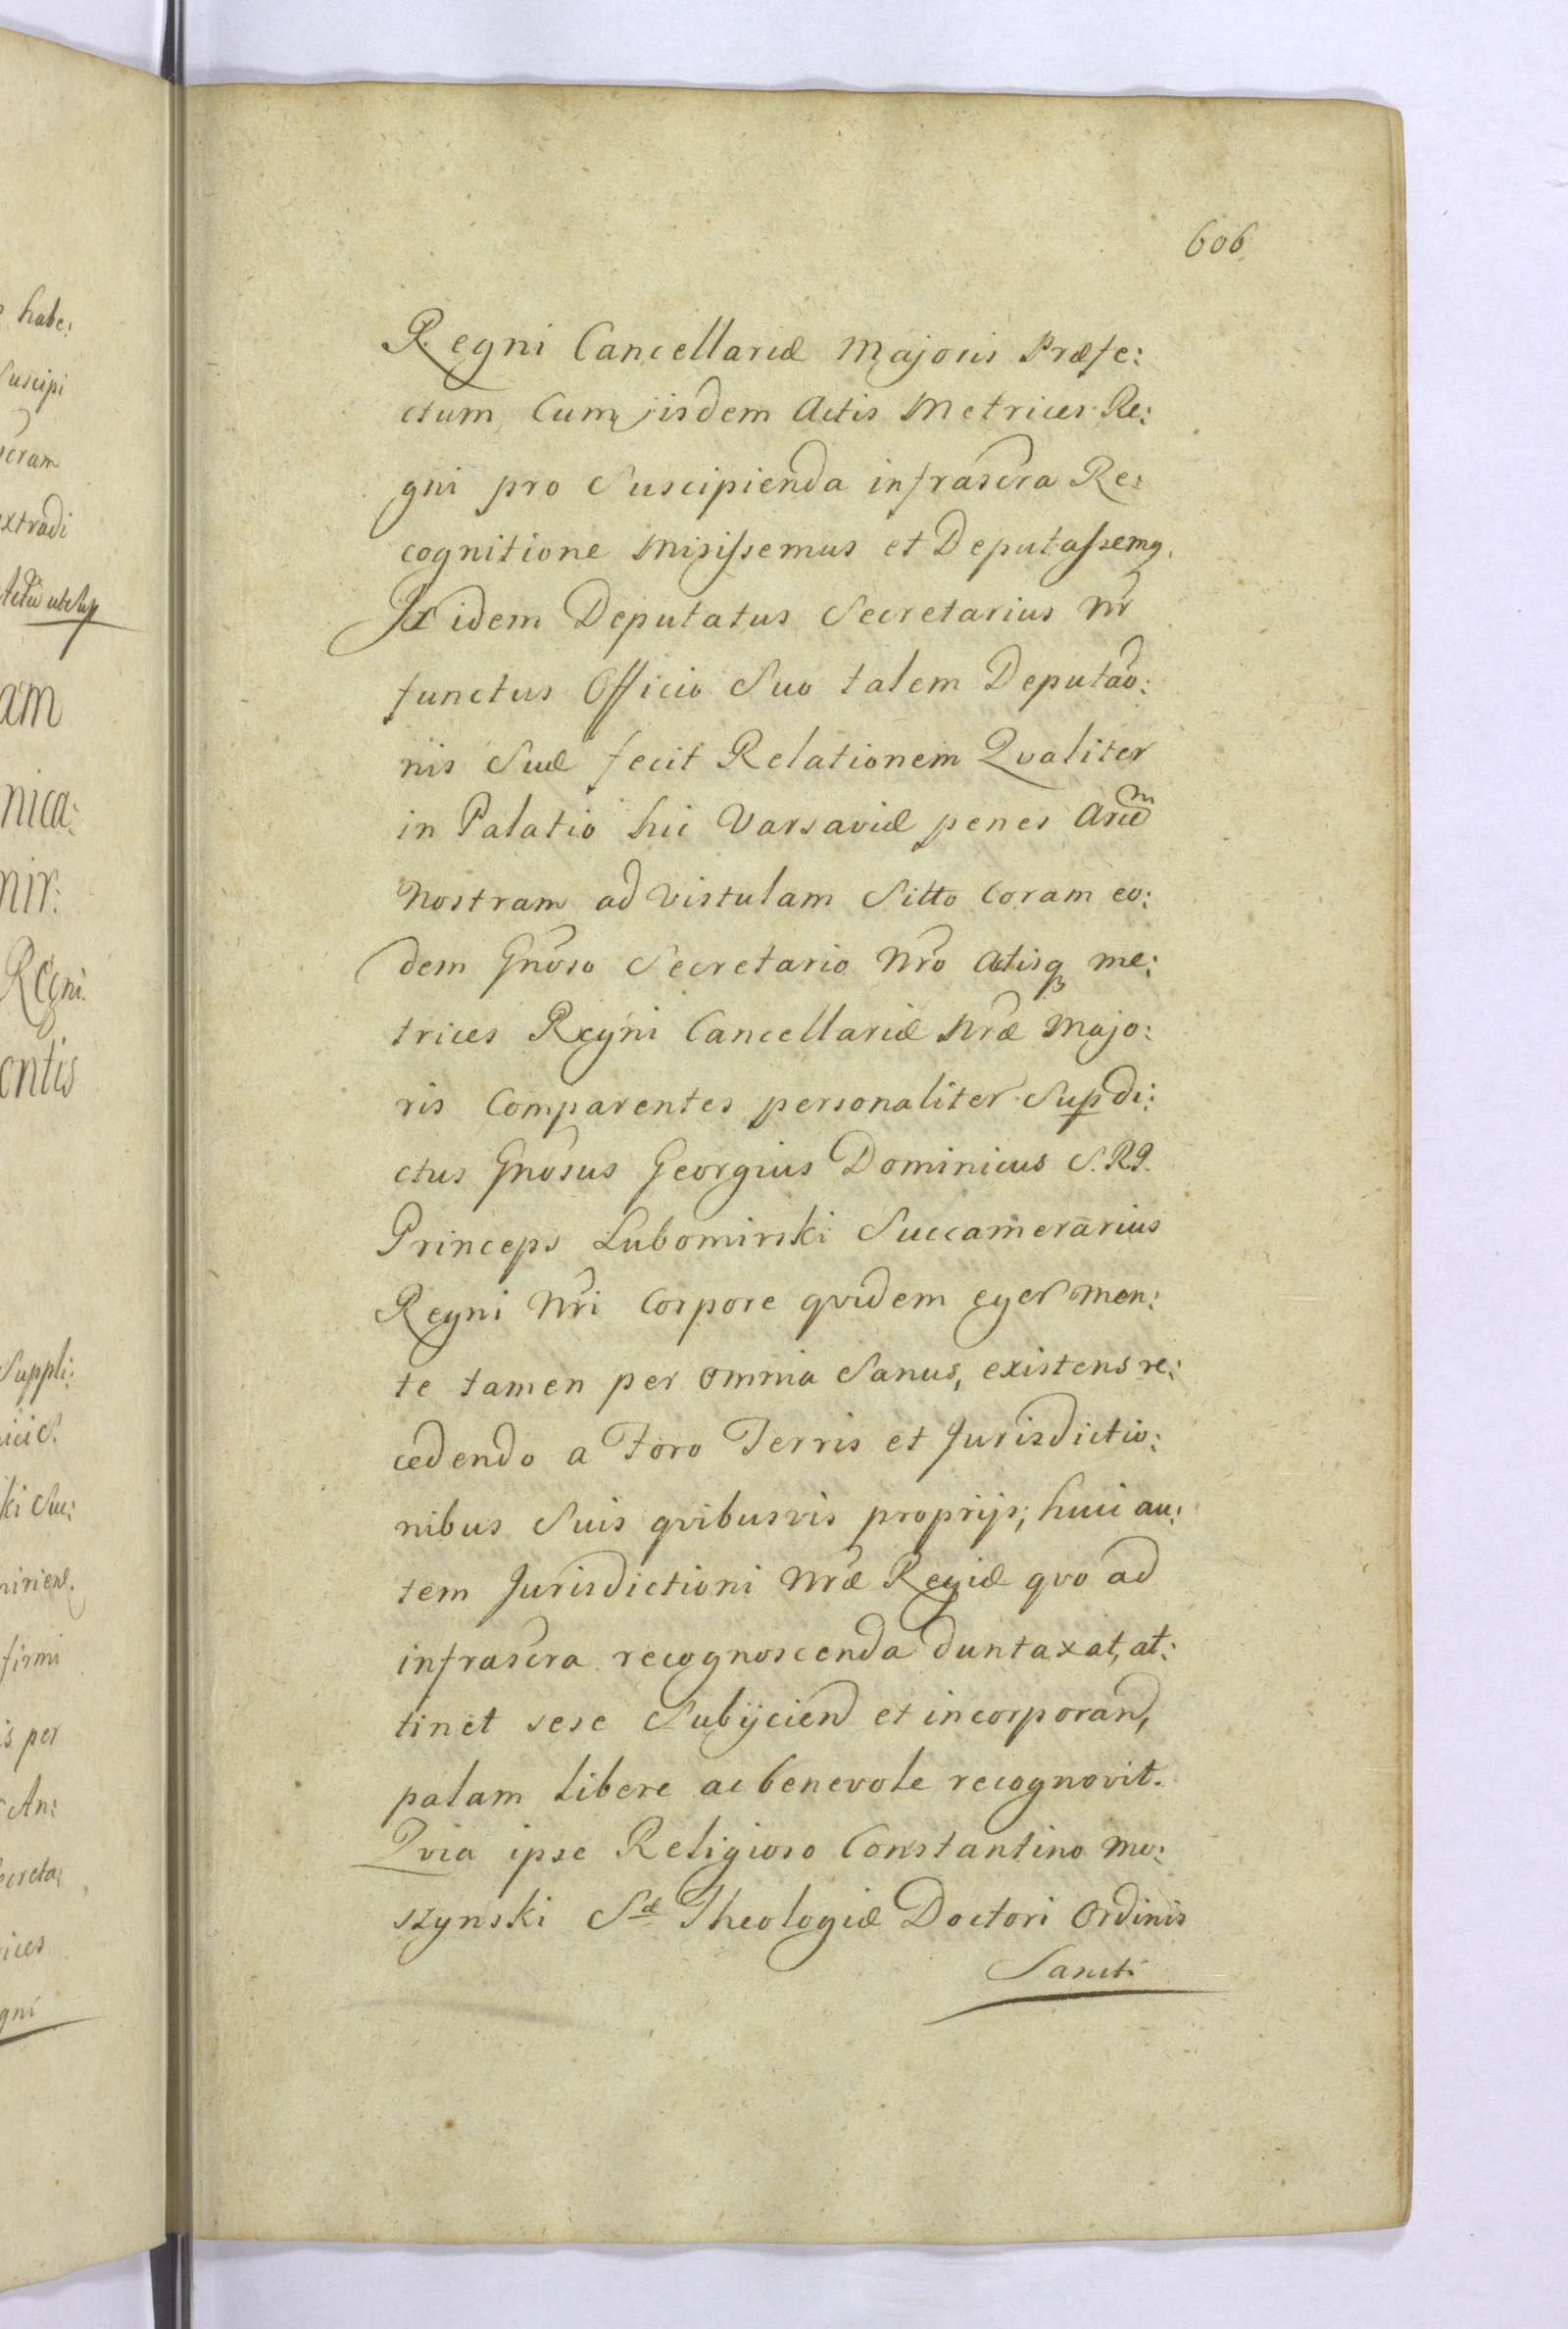 606.
Regni Cancellariæ Majoris Præfe:
ctum, Cum iisdem Actis Metrices Re:
gni pro Suscipienda infrascra Re:
cognitione misissemus et Deputassemq.
Is idem Deputatus Secretarius Nr
functus Officio Suo talem Deputao:
nis Suæ fecit Relationem Qvaliter
in Palatio hic Varsaviæ penes Arcem
Nostram ad Vistulam Sitto Coram eo:
dem Gnoso Secretario Nro Actisq me:
trices Regni Cancellariæ Nræ Majo:
ris Comparentes personaliter Supdi:
ctus Gnosus Georgius Dominicus S.R.I.
Princeps Lubomirski Succamerarius
Regni Nri Corpore qvidem eger men:
te tamen per omnia Sanus, existens re:
cedendo a Foro Terris et Jurisdictio:
nibus Suis qvibusvis proprijs; huic au:
tem Jurisdictioni Nræ Regiæ qvo ad
infrascra recognoscenda duntaxat, at:
tinet sese Subijciend et incorporand,
palam Libere ac benevole recognovit.
Qvia ipse Religioso Constantino Mo:
szynski Sæ Theologiæ Doctori Ordinis
Sancti
habe:
Suscipi
scram
extradi
Actu ut Sup
am
nica:
nir:
Regni
ontis
Suppli:
ki Suc:
firmi
is per
An:
Secreta:
ices
gni